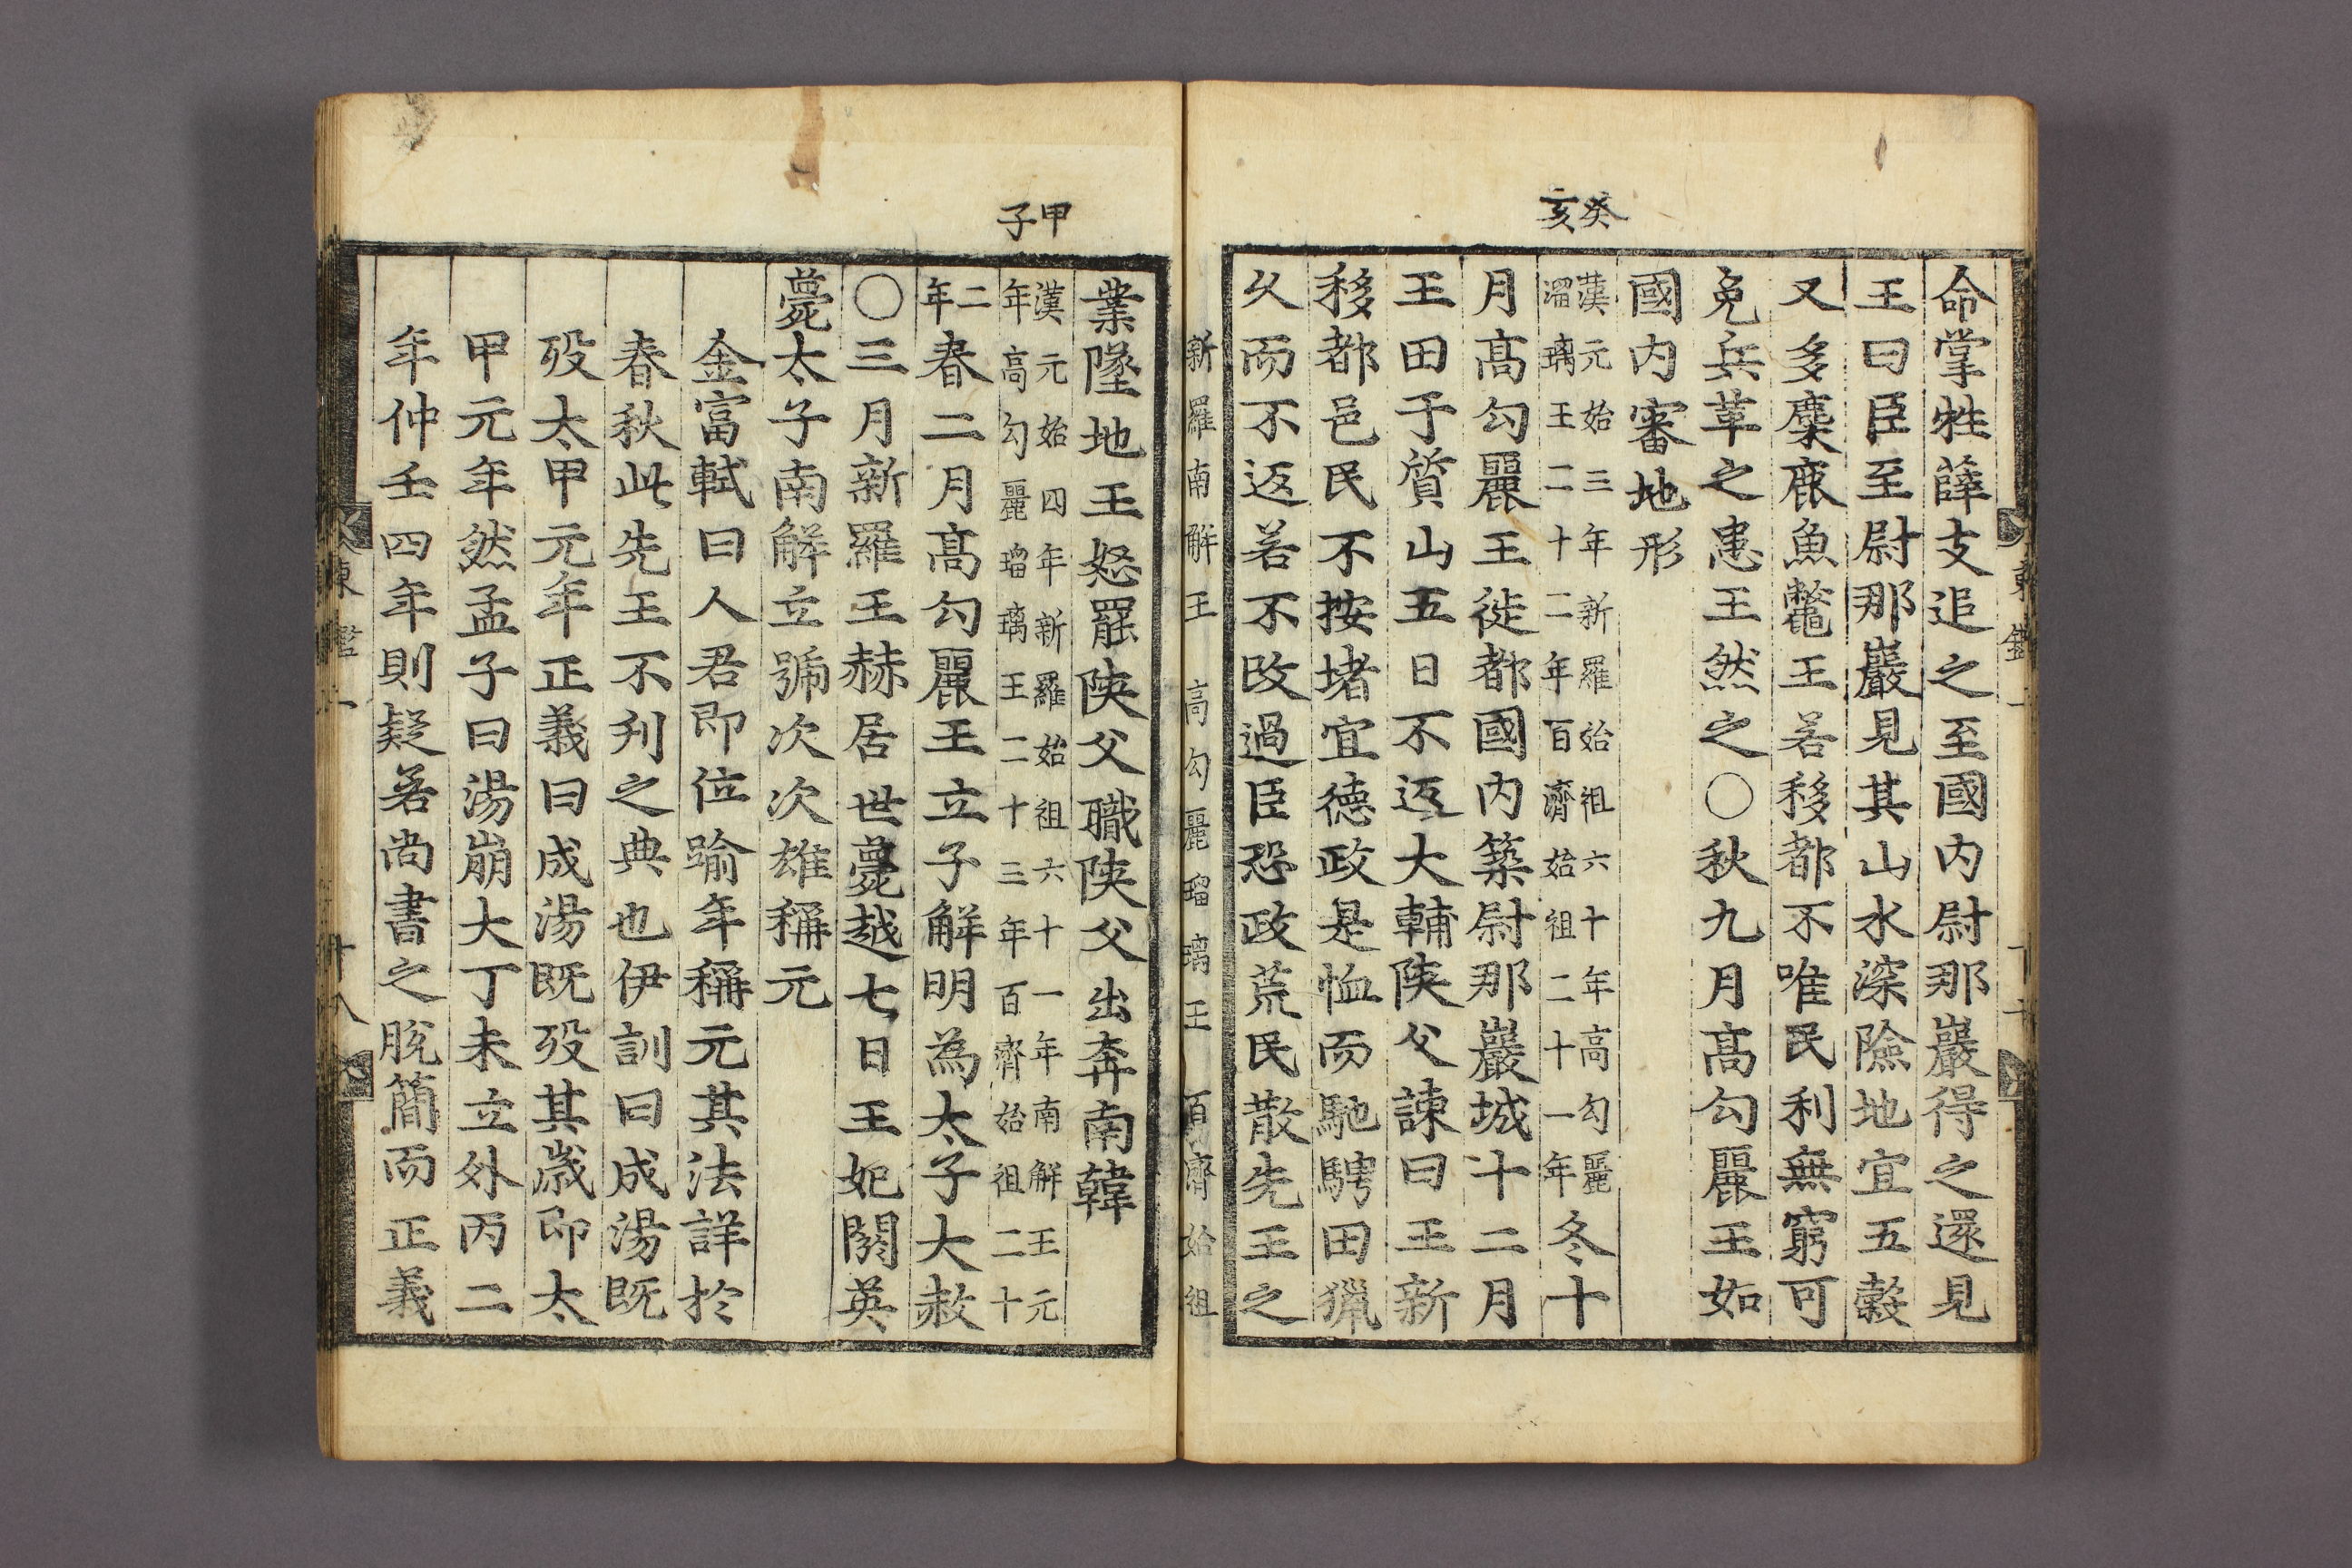 癸亥
命掌牲薛支追之至國內尉那巖得之還見
王曰臣至尉那巖見其山水深險地宜五穀
又多麋鹿魚鼈王若移都不唯民利無窮可
免兵革之患王然之○秋九月高勾麗王如
國內審地形
漢元始三年新羅始祖六十年高勾麗
瑠璃王二十二年百濟始祖二十一年
冬十
月高勾麗王徙都國內築尉那巖城十二月
王田于質山五日不返大輔陜父諫曰王新
移都邑民不按堵宜德政是恤而馳騁田獵
久而不返若不改過臣恐政荒民散先王之
新羅南解王 高勾麗瑠璃王 百濟始祖
甲子
業墜地王怒罷陜父職陜父出奔南韓
漢元始四年新羅始祖六十一年南解王元
年高勾麗瑠璃王二十三年百濟始祖二十
二年
春二月高勾麗王立子解明為太子大赦
○三月新羅王赫居世薨越七日王妃閼英
薨太子南解立號次次雄稱元
金富軾曰人君即位踰年稱元其法詳於
春秋此先王不刋之典也伊訓曰成湯旣
歿太甲元年正義曰成湯旣歿其歲即太
甲元年然孟子曰湯崩大丁未立外丙二
年仲壬四年則疑若尚書之脫簡而正義
東鑑一
十八